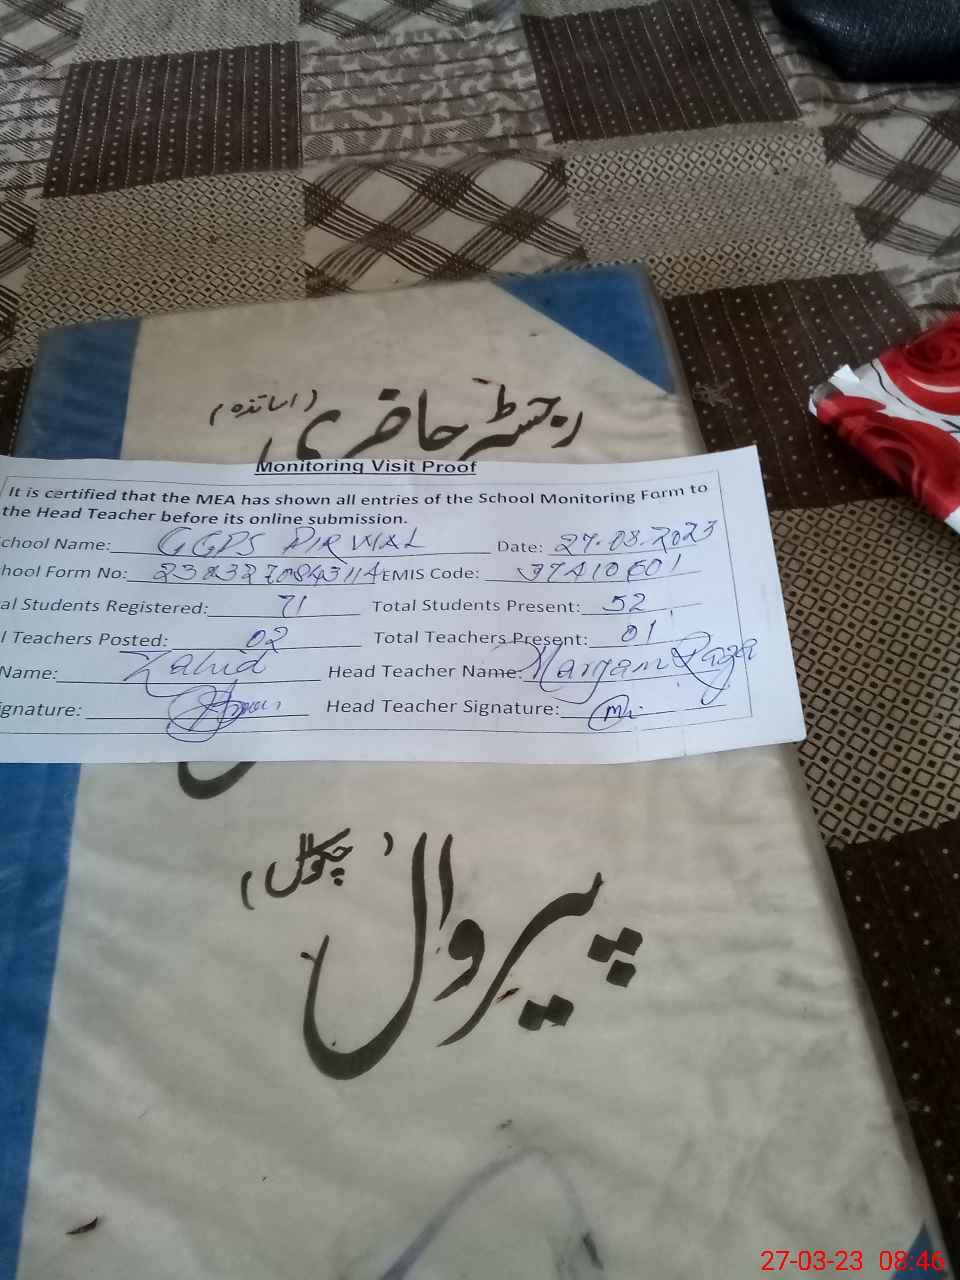 رجسٹر حاضری (اساتذہ)
Monitoring Visit Proof
It is certified that the MEA has shown all entries of the School Monitoring Form to
the Head Teacher before its online submission.
chool Name: GGPS PIRWAL Date: 27.03.2023
hool Form No: EMIS Code: 37410601
al Students Registered: 71 Total Students Present: 52
l Teachers Posted: 02 Total Teachers Present: 01
Name: Zahid Head Teacher Name: Maryam
ignature: Head Teacher Signature:
پیروال (چکوال)
27-03-23 08:46